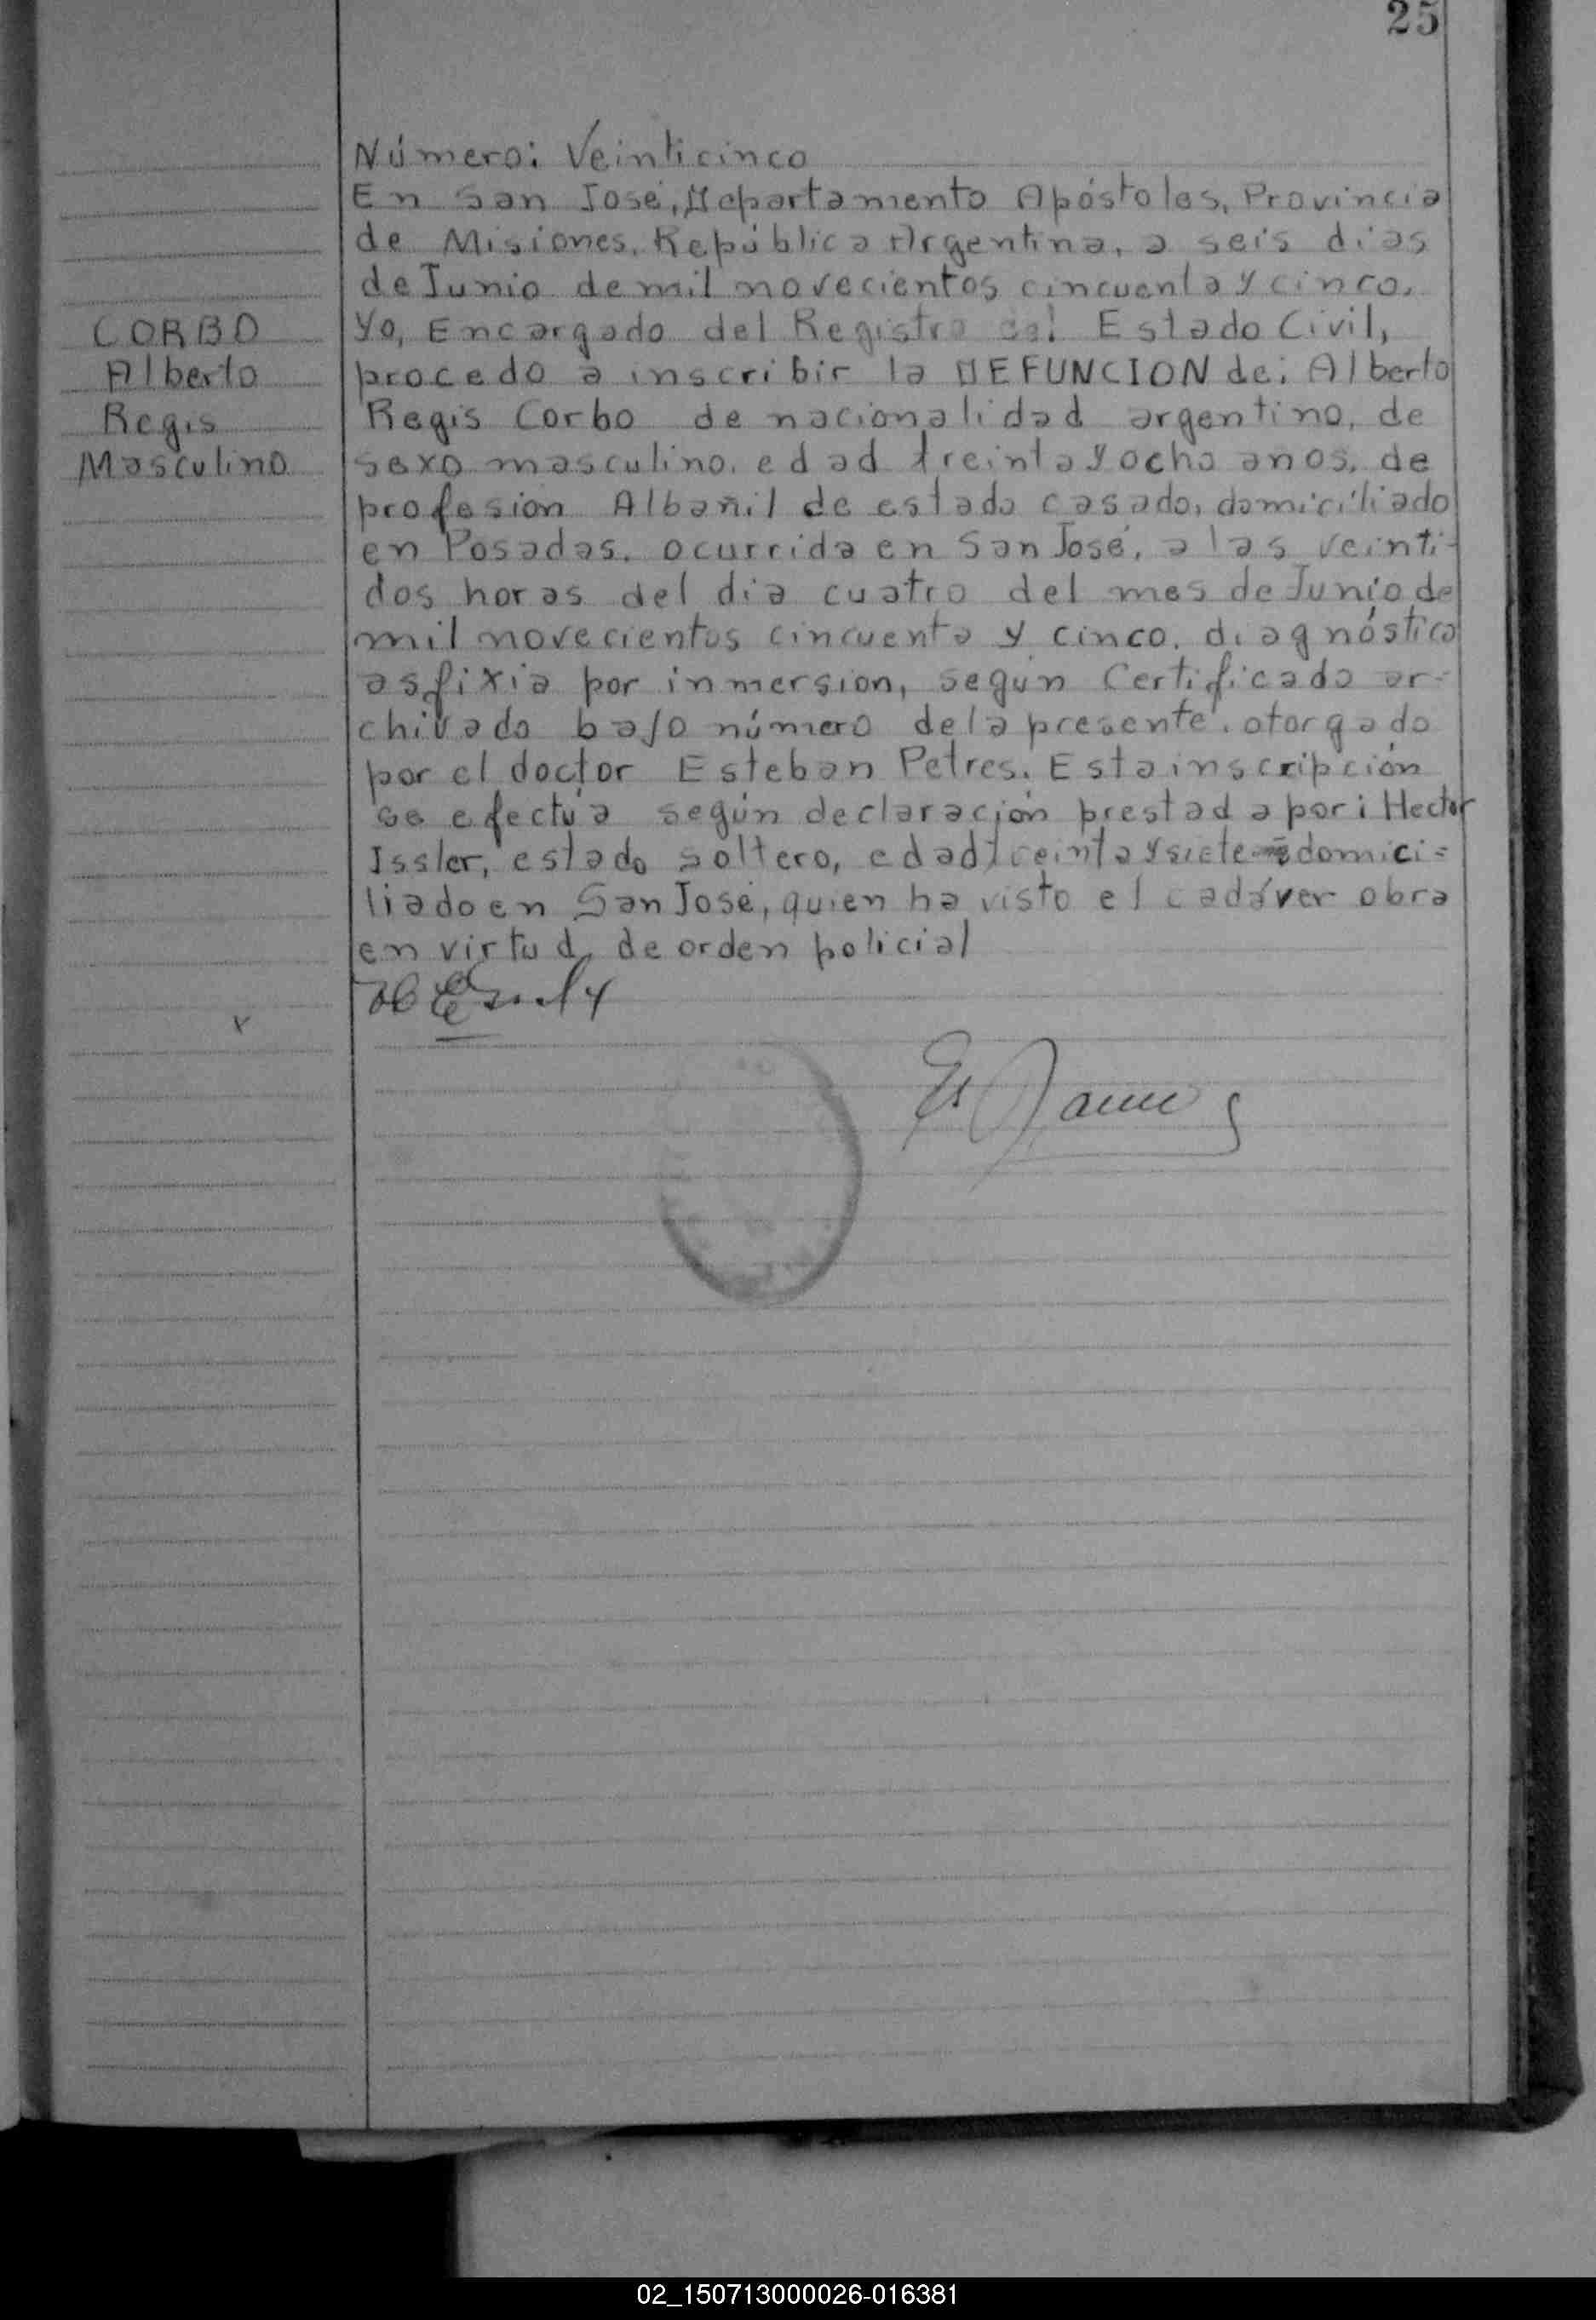 25
Número: Veinticinco
En San José, Departamento Apóstoles, Provincia
de Misiones, República Argentina, a seis días
de Junio de mil novecientos cincuenta y cinco.
CORBO
Yo, Encargado del Registro del Estado Civil,
Alberto
procedo a inscribir la DEFUNCION de: Alberto
Regis
Regis Corbo de nacionalidad argentino, de
Masculino
sexo masculino, edad treinta y ocho anos, de
profesion Albañil de estado casado, domiciliado
en Posadas, ocurrida en San José, a las veinti-
dos horas del dia cuatro del mes de Junio de
mil novecientos cincuenta y cinco. diagnóstico
asfixia por inmersion, según Certificado ar-
chivado bajo número de la presente, otorgado
por el doctor Esteban Petres. Esta inscripción
se efectúa según declaración prestada por: Hector
Issler, estado soltero, edad treinta y siete domici=
liado en San José, quien ha visto el cadáver obra
en virtud de orden policial
02_150713000026-016381